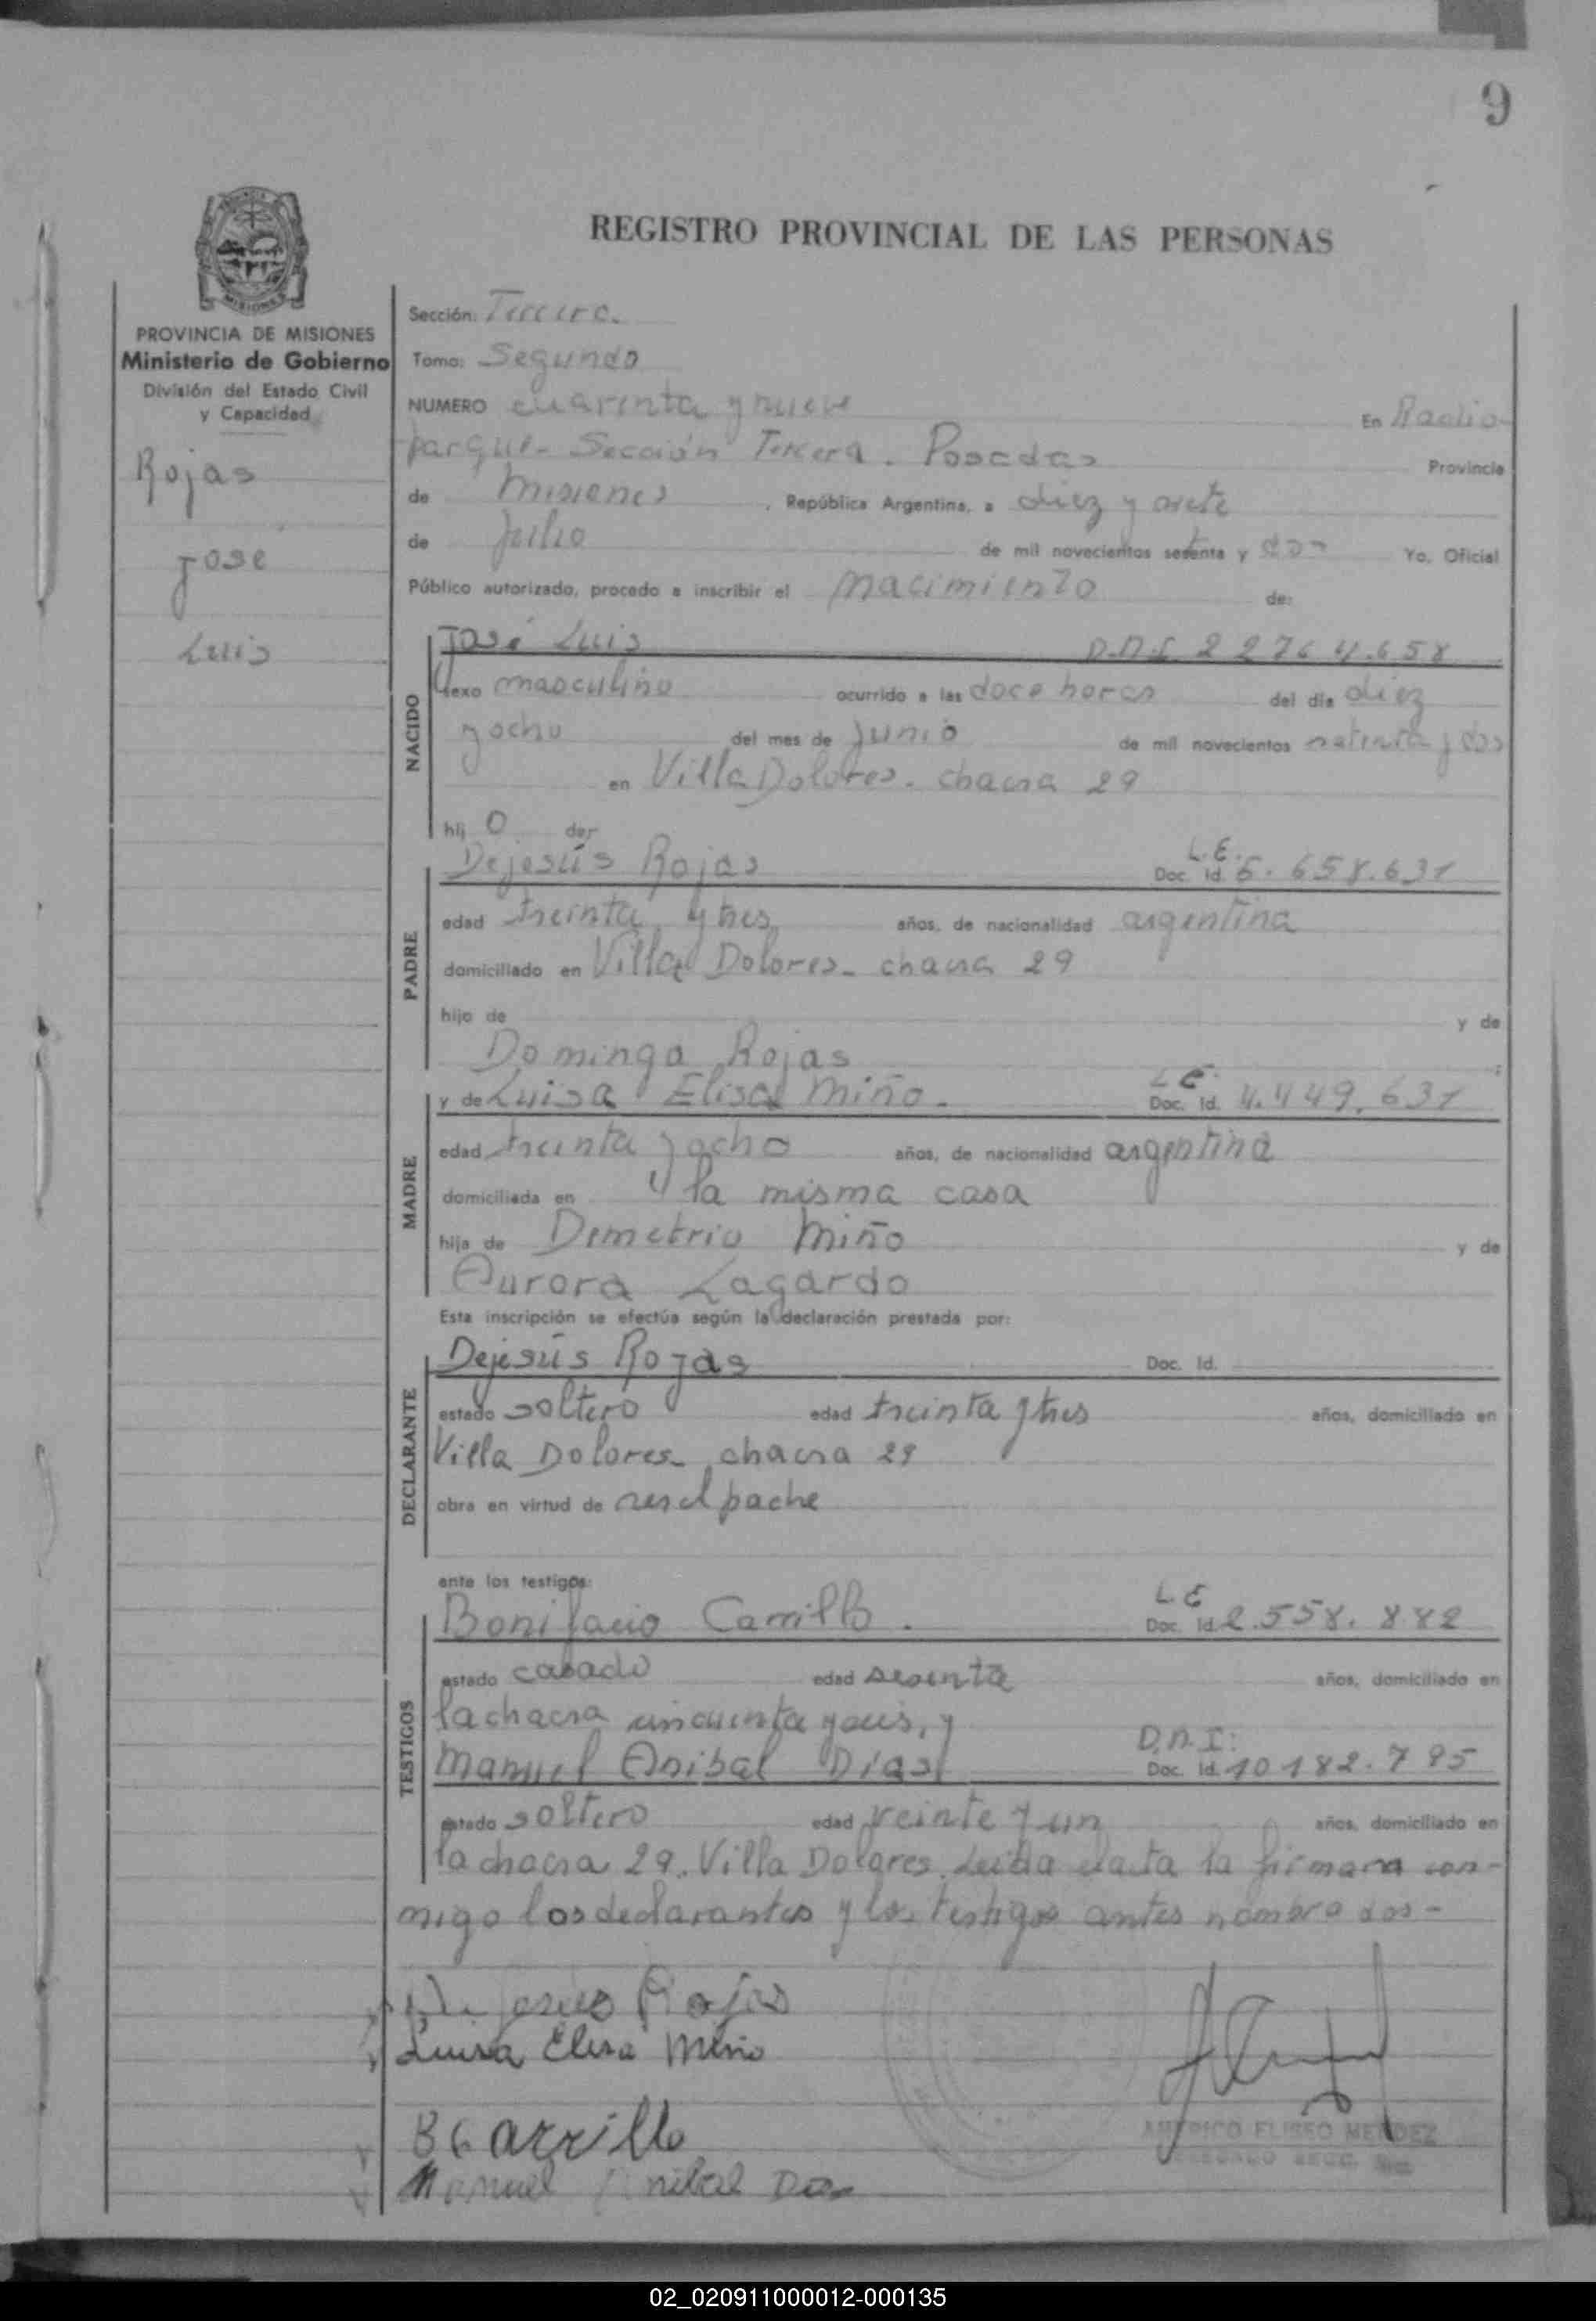 9
REGISTRO PROVINCIAL DE LAS PERSONAS
PROVINCIA DE MISIONES
Ministerio de Gobierno
División del Estado Civil
y Capacidad
Rojas
José
Luis
Sección: Tercera.
Tomo: Segundo
NUMERO cuarenta y nueve En Radio-
parque- Sección Tercera. Posadas Provincia
de Misiones, República Argentina, a diez y siete
de Julio de mil novecientos setenta y dos Yo, Oficial
Público autorizado, procedo a inscribir el Nacimiento de:
NACIDO
José Luis D.N.I. 22764.658
sexo masculino ocurrido a las doce horas del día diez
y ocho del mes de Junio de mil novecientos setenta y dos
en Villa Dolores. chacra 29
hij o de:
PADRE
Dejesús Rojas L.E. Doc. Id. 5.658.631
edad treinta y tres años, de nacionalidad argentina
domiciliado en Villa Dolores- chacra 29
hijo de y de
Dominga Rojas
MADRE
y de Luisa Elisa Miño. L.E. Doc. Id. 4.449.631
edad treinta y ocho años, de nacionalidad argentina
domiciliada en la misma casa
hija de Demetrio Miño y de
Aurora Lagardo
Esta inscripción se efectúa según la declaración prestada por:
DECLARANTE
Dejesús Rojas Doc. Id.
estado soltero edad treinta y tres años, domiciliado en
Villa Dolores- chacra 29
obra en virtud de ser el padre
ante los testigos:
TESTIGOS
Bonifacio Carrillo. L.E. Doc. Id. 2.558.882
estado casado edad sesenta años, domiciliado en
la chacra cincuenta y seis, y
Manuel Anibal Dias D.N.I: Doc. Id. 10182.795
estado soltero edad veinte y un años, domiciliado en
la chacra 29. Villa Dolores. Leida el acta la firman con-
migo los declarantes y los testigos antes nombrados-
Dejesús Rojas
Luisa Elisa Miño
B Carrillo
Manuel Anibal Dias
AMERICO ELISEO MENDEZ
02_020911000012-000135